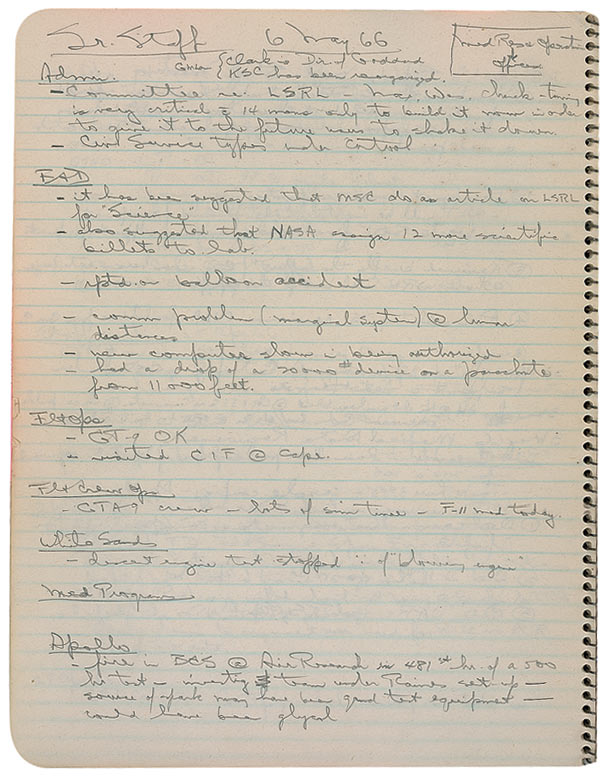 Sr. Staff 6 May 66
Med Rese
Offices
Clark is Dir. of Goddard
KSC has been reorganized.
Admin.
- Committee re. LSRL - Max, Wes, chuck - timing
is very critical 14 mons only to build it now in order
to give it to the future users to shake it down.
- Civil Service types under control
E&D
- it has been suggested that MSC do an article on LSRL
for "Science"
- also suggested that NASA assign 12 more scientific
billets to lab.
- rptd. on balloon accident
- comm problem (marginal system) @ lunar
distances
- new computer is being authorized
- had a drop of a # device on a parachute
from 11 000 feet.
Flt Ops
- GT-9 OK
- visited CIF @ Cape.
Flt Crew Ops
- GTA-9 crew - lots of sim time - F-11 med today.
White Sands
- descent engine test stopped of engine"
Med Programs
Apollo
- fire in ECS @ AiResearch in 481st hr. of a 500
hr test - investig team under Raines set-up -
source of spark may have been gnd test equipment -
could have been glycol